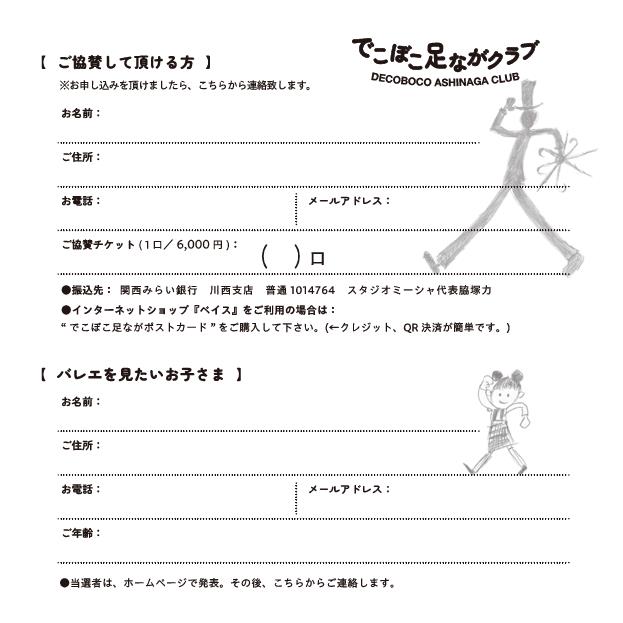 でこぼこ足ながクラブ
DECOBOCO ASHINAGA CLUB
【 ご協賛して頂ける方 】
※お申し込みを頂けましたら、こちらから連絡致します。
お名前：
ご住所：
お電話： メールアドレス：
ご協賛チケット (1口／ 6,000 円)： ( ) 口
●振込先： 関西みらい銀行 川西支店 普通 1014764 スタジオミーシャ代表脇塚力
●インターネットショップ『ベイス』をご利用の場合は：
“ でこぼこ足ながポストカード ” をご購入して下さい。(←クレジット、QR 決済が簡単です。)
【 バレエを見たいお子さま 】
お名前：
ご住所：
お電話： メールアドレス：
ご年齢：
●当選者は、ホームページで発表。その後、こちらからご連絡します。